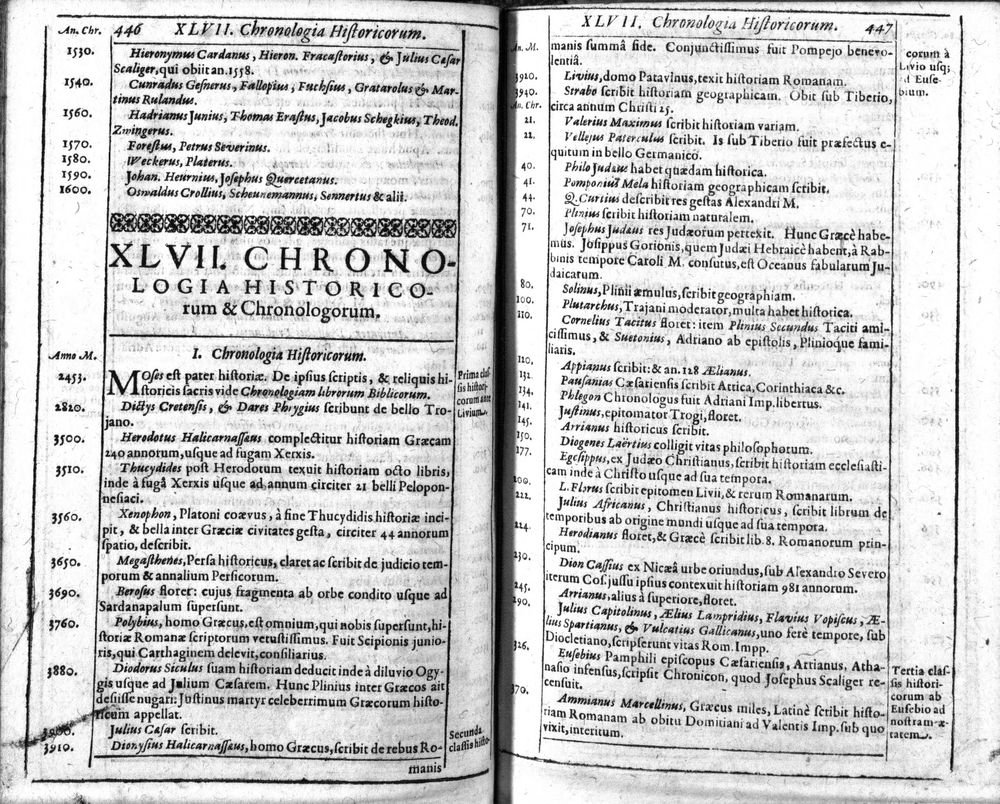 An. Chr. 446 XLVII. Chronologia Historicorum.
1530. Hieronymus Cardanus, Hieron. Fracastorius, & Julius Cæsar
Scaliger, qui obiit an. 1558.
1540. Cunradus Gesnerus, Fallopius, Fuchsius, Gratarolus & Mar-
tinus Rulandus.
1560. Hadrianus Junius, Thomas Erastus, Jacobus Schegkius, Theod.
Zwingerus.
1570. Forestus, Petrus Severinus.
1580. Weckerus, Platerus.
1590. Johan. Heurnius, Josephus Quercetanus.
1600. Oswaldus Crollius, Scheunemannus, Sennertus & alii.
XLVII. CHRONO-
LOGIA HISTORICO-
rum & Chronologorum.
I. Chronologia Historicorum.
Anno M.
2453. MOses est pater historiæ. De ipsius scriptis, & reliquis hi-
storicis sacris vide Chronologiam librorum Biblicorum.
Prima clas-
sis histori-
corum ante
Livium.
2820. Dictys Cretensis, & Dares Phrygius scribunt de bello Tro-
jano.
3500. Herodotus Halicarnassæus complectitur historiam Græcam
240 annorum, usque ad fugam Xerxis.
3510. Thucydides post Herodotum texuit historiam octo libris,
inde à fugâ Xerxis usque ad annum circiter 21 belli Pelopon-
nesiaci.
3560. Xenophon, Platoni coævus, à fine Thucydidis historiæ inci-
pit, & bella inter Græciæ civitates gesta, circiter 44 annorum
spatio, describit.
3650. Megasthenes, Persa historicus, claret ac scribit de judicio tem-
porum & annalium Persicorum.
3690. Berosus floret: cujus fragmenta ab orbe condito usque ad
Sardanapalum supersunt.
3760. Polybius, homo Græcus, est omnium, qui nobis supersunt, hi-
storiæ Romanæ scriptorum vetustissimus. Fuit Scipionis junio-
ris, qui Carthaginem delevit, consiliarius.
3880. Diodorus Siculus suam historiam deducit inde à diluvio Ogy-
gis usque ad Julium Cæsarem. Hunc Plinius inter Græcos ait
desiisse nugari: Justinus martyr celeberrimum Græcorum histo-
ricum appellat.
3900. Julius Cæsar scribit.
3910. Dionysius Halicarnassæus, homo Græcus, scribit de rebus Ro-
Secunda
classis histo-
manis
XLVII. Chronologia Historicorum. 447
An. M.
manis summâ fide. Conjunctissimus fuit Pompejo benevo-
lentiâ.
corum à
Livio usq;
ad Euse-
bium.
3920. Livius, domo Patavinus, texit historiam Romanam.
3940. Strabo scribit historiam geographicam. Obit sub Tiberio,
circa annum Christi 25.
An. Chr.
21. Valerius Maximus scribit historiam variam.
22. Vellejus Paterculus scribit. Is sub Tiberio fuit præfectus e-
quitum in bello Germanico.
40. Philo Judæus habet quædam historica.
41. Pomponius Mela historiam geographicam scribit.
44. Q. Curtius describit res gestas Alexandri M.
70. Plinius scribit historiam naturalem.
71. Josephus Judæus res Judæorum pertexit. Hunc Græcè habe-
mus. Josippus Gorionis, quem Judæi Hebraicè habent, à Rab-
binis tempore Caroli M. consutus, est Oceanus fabularum Ju-
daicarum.
80. Solinus, Plinii æmulus, scribit geographiam.
100. Plutarchus, Trajani moderator, multa habet historica.
110. Cornelius Tacitus floret: item Plinius Secundus Taciti ami-
cissimus, & Suetonius, Adriano ab epistolis, Plinioque fami-
liaris.
120. Appianus scribit: & an. 128 Ælianus.
132. Pausanias Cæsariensis scribit Attica, Corinthiaca &c.
134. Phlegon Chronologus fuit Adriani Imp. libertus.
141. Justinus, epitomator Trogi, floret.
145. Arrianus historicus scribit.
150. Diogenes Laërtius colligit vitas philosophorum.
177. Egesippus, ex Judæo Christianus, scribit historiam ecclesiasti-
cam inde à Christo usque ad sua tempora.
200. L. Florus scribit epitomen Livii, & rerum Romanarum.
222. Julius Africanus, Christianus historicus, scribit librum de
temporibus ab origine mundi usque ad sua tempora.
224. Herodianus floret, & Græcè scribit lib. 8. Romanorum prin-
cipum.
230. Dion Cassius ex Nicæâ urbe oriundus, sub Alexandro Severo
iterum Cos. jussu ipsius contexuit historiam 981 annorum.
245. Arrianus, alius à superiore, floret.
290. Julius Capitolinus, Ælius Lampridius, Flavius Vopiscus, Æ-
lius Spartianus, & Vulcatius Gallicanus, uno ferè tempore, sub
Diocletiano, scripserunt vitas Rom. Impp.
326. Eusebius Pamphili episcopus Cæsariensis, Arrianus, Atha-
nasio infensus, scripsit Chronicon, quod Josephus Scaliger re-
censuit.
Tertia clas-
sis histori-
corum ab
Eusebio ad
nostram æ-
tatem.
370. Ammianus Marcellinus, Græcus miles, Latinè scribit histo-
riam Romanam ab obitu Domitiani ad Valentis Imp. sub quo
vixit, interitum.